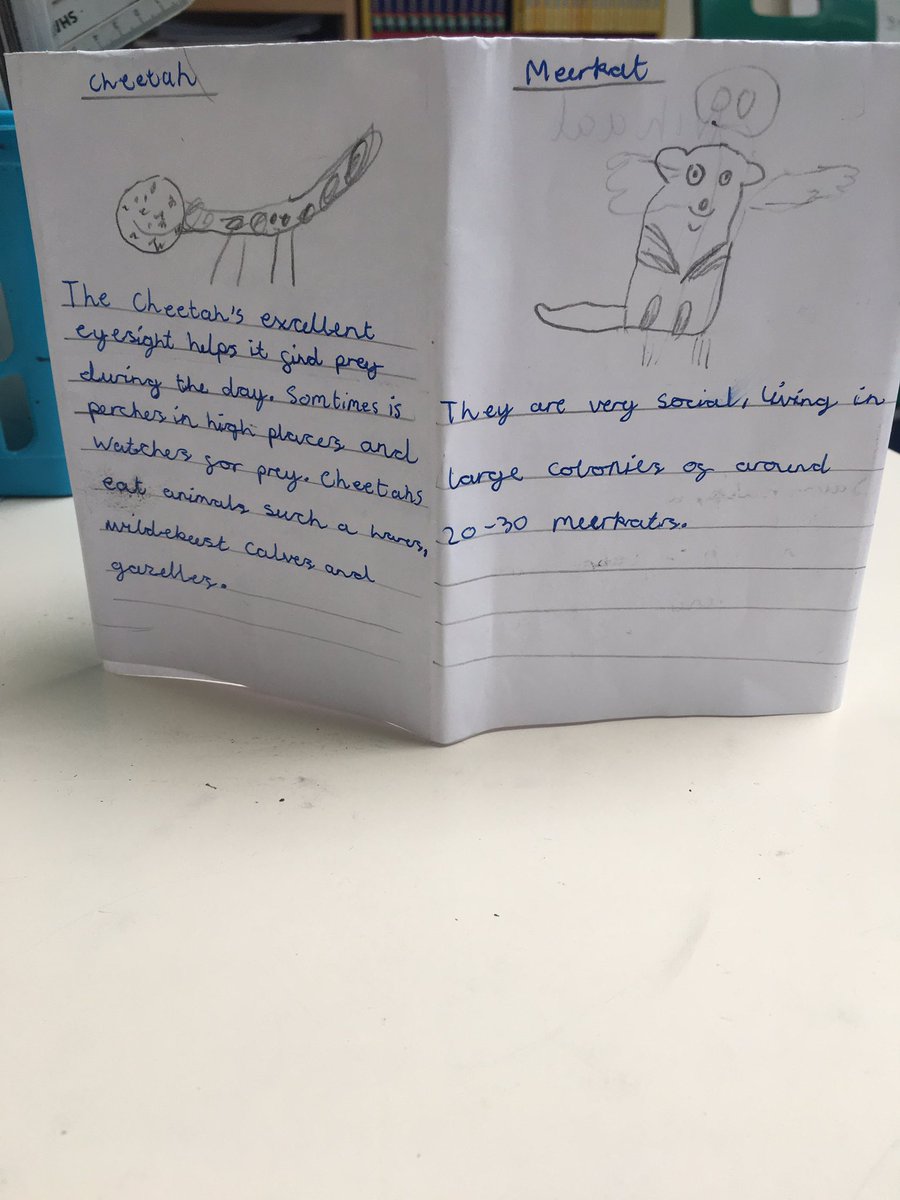 Cheetah
The Cheetah's excellent
eyesight helps it find prey
during the day. Somtimes is
perches in high places and
watches for prey. Cheetahs
eat animals such a hares,
wildebeest calves and
gazelles.
Meerkat
They are very social, living in
large colonies of around
20-30 meerkats.